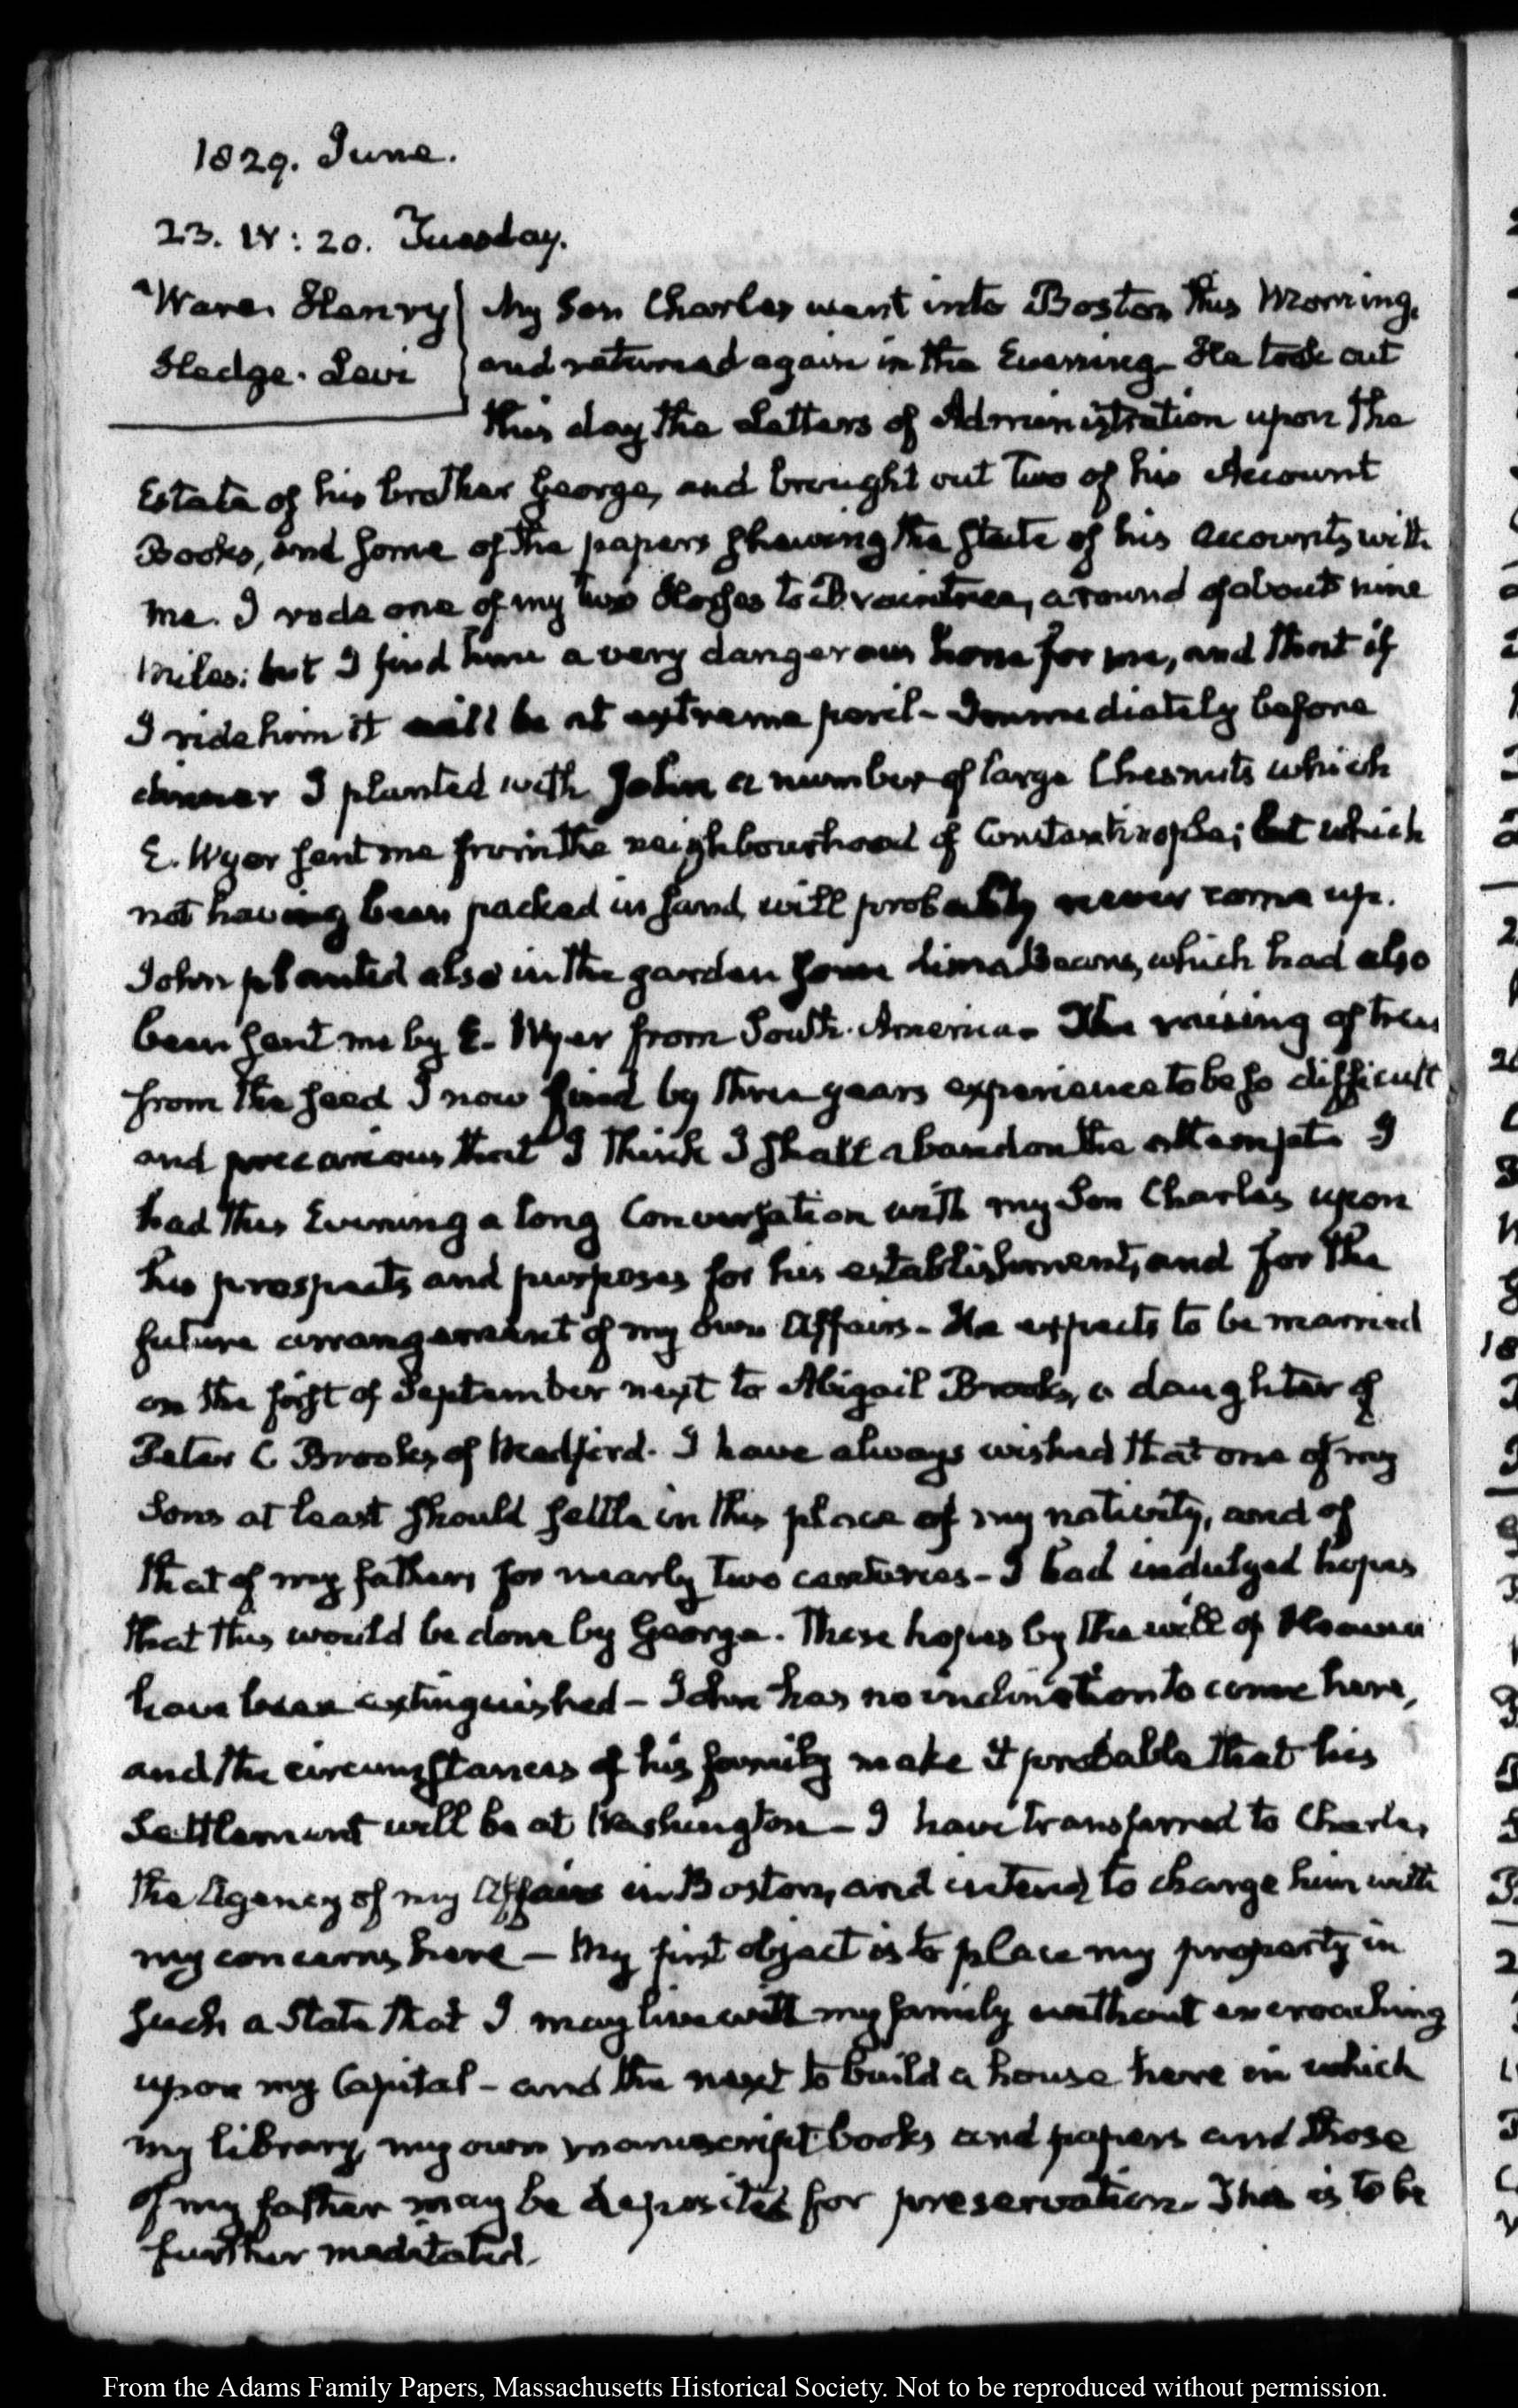 1829. June.
23. IV: 20. Tuesday.
Ware. Henry My Son Charles went into Boston this Morning,
Hedge. Levi and returned again in the Evening. He took out
this day the Letters of Administration upon the
Estate of his brother George, and brought out two of his Account
Books, and some of the papers shewing the state of his accounts with
me. I rode one of my two Horses to Braintree, a round of about nine
miles: but I find him a very dangerous horse for me, and that if
I ride him it will be at extreme peril. Immediately before
dinner I planted with John a number of large Chesnuts which
E. Wyer sent me from the neighbourhood of Constantinople; but which
not having been packed in sand, will probably never come up.
John planted also in the garden some Lima Beans, which had also
been sent me by E. Wyer from South-America. The raising of trees
from the seed I now find by three years experience to be so difficult
and precarious that I think I shall abandon the attempt. I
had this Evening a long Conversation with my Son Charles upon
his prospects and purposes for his establishment, and for the
future arrangement of my own Affairs. He expects to be married
on the first of September next to Abigail Brooks, a daughter of
Peter C Brooks, of Medford. I have always wished that one of my
Sons at least should settle in this place of my nativity, and of
that of my fathers for nearly two centuries - I had indulged hopes
that this would be done by George. These hopes by the will of Heaven
have been extinguished - John has no inclination to come here,
and the circumstances of his family make it probable that his
Settlement will be at Washington - I have transferred to Charles
the Agency of my Affairs in Boston, and intend to charge him with
my concerns here - My first object is to place my property in
such a State that I may live with my family without encroaching
upon my Capital - and the next to build a house here in which
my library, my own manuscript books and papers and those
of my father may be deposited for preservation. This is to be
further meditated.
From the Adams Family Papers, Massachusetts Historical Society. Not to be reproduced without permission.